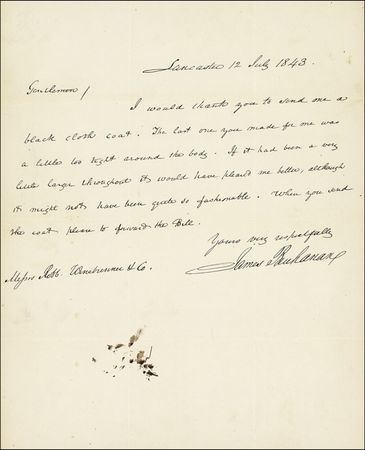 Lancaster 12 July 1843.
Gentlemen /
I would thank you to send me a
black cloth coat. The last one you made for me was
a little too tight around the body. If it had been a very
little large throughout it would have pleased me better, although
it might not have been quite so fashionable. When you send
the coat please to forward the Bill.
Yours very respectfully
James Buchanan
Messrs Robb. Winebrenner & Co.